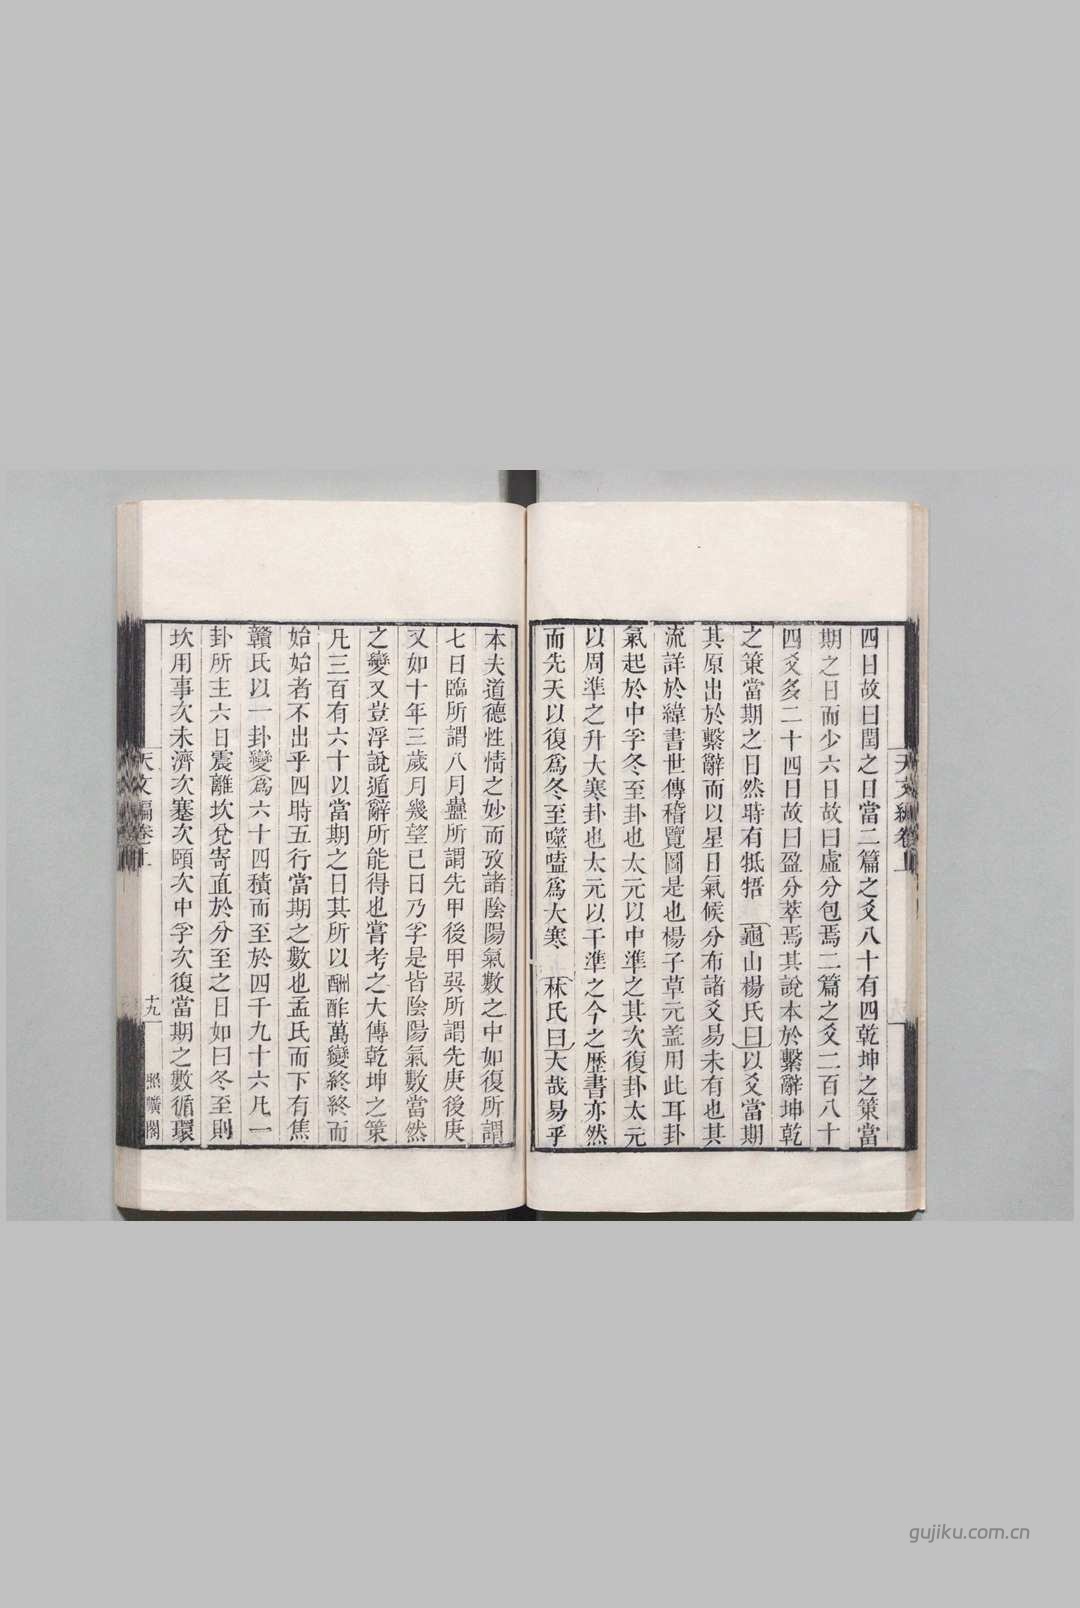 四日故曰閏之日當二篇之爻八十有四乾坤之策當
期之日而少六日故曰虛分包焉二篇之爻二百八十
四爻多二十四日故曰盈分萃焉其說本於繫辭坤乾
之策當期之日然時有牴牾 龜山楊氏曰以爻當期
其原出於繫辭而以星日氣候分布諸爻易未有也其
流詳於緯書世傳稽覽圖是也楊子草元蓋用此耳卦
氣起於中孚冬至卦也太元以中準之其次復卦太元
以周準之升大寒卦也太元以干準之今之歷書亦然
而先天以復爲冬至噬嗑爲大寒 秝氏曰大哉易乎
本夫道德性情之妙而攷諸陰陽氣數之中如復所謂
七日臨所謂八月蠱所謂先甲後甲巽所謂先庚後庚
又如十年三歲月幾望已日乃孚是皆陰陽氣數當然
之變又豈浮說遁辭所能得也嘗考之大傳乾坤之策
凡三百有六十以當期之日其所以酬酢萬變終終而
始始者不出乎四時五行當期之數也孟氏而下有焦
贛氏以一卦變爲六十四積而至於四千九十六凡一
卦所主六日震離坎兌寄直於分至之日如曰冬至則
坎用事次未濟次蹇次頤次中孚次復當期之數循環
天文編卷十
十九
照曠閣
gujiku.com.cn